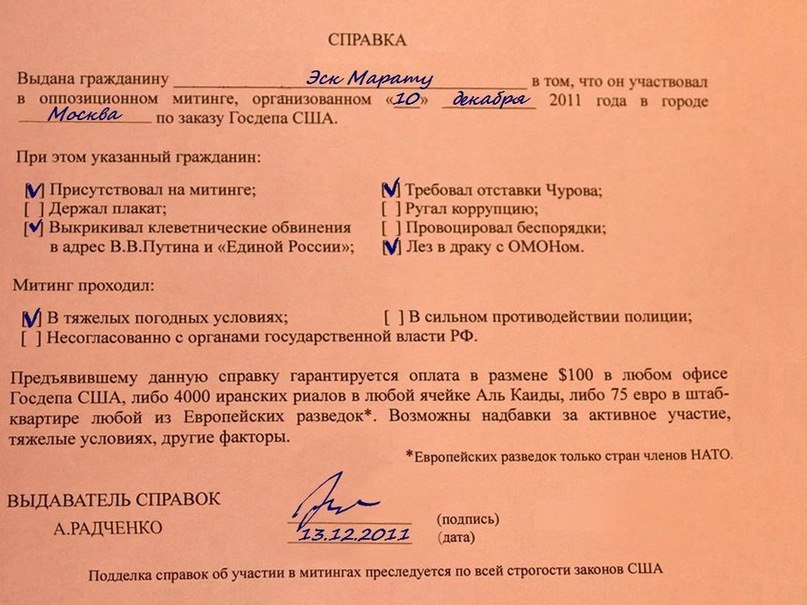 СПРАВКА
Выдана гражданину Эск Марату в том, что он участвовал
в оппозиционном митинге, организованном «10» декабря 2011 года в городе
Москва по заказу Госдепа США.
При этом указанный гражданин:
[V] Присутствовал на митинге; [V] Требовал отставки Чурова;
[ ] Держал плакат; [ ] Ругал коррупцию;
[V] Выкрикивал клеветнические обвинения [ ] Провоцировал беспорядки;
в адрес В.В.Путина и «Единой России»; [V] Лез в драку с ОМОНом.
Митинг проходил:
[V] В тяжелых погодных условиях; [ ] В сильном противодействии полиции;
[ ] Несогласованно с органами государственной власти РФ.
Предъявившему данную справку гарантируется оплата в размене $100 в любом офисе
Госдепа США, либо 4000 иранских риалов в любой ячейке Аль Каиды, либо 75 евро в штаб-
квартире любой из Европейских разведок*. Возможны надбавки за активное участие,
тяжелые условиях, другие факторы.
*Европейских разведок только стран членов НАТО.
ВЫДАВАТЕЛЬ СПРАВОК
А.РАДЧЕНКО (подпись)
13.12.2011 (дата)
Подделка справок об участии в митингах преследуется по всей строгости законов США